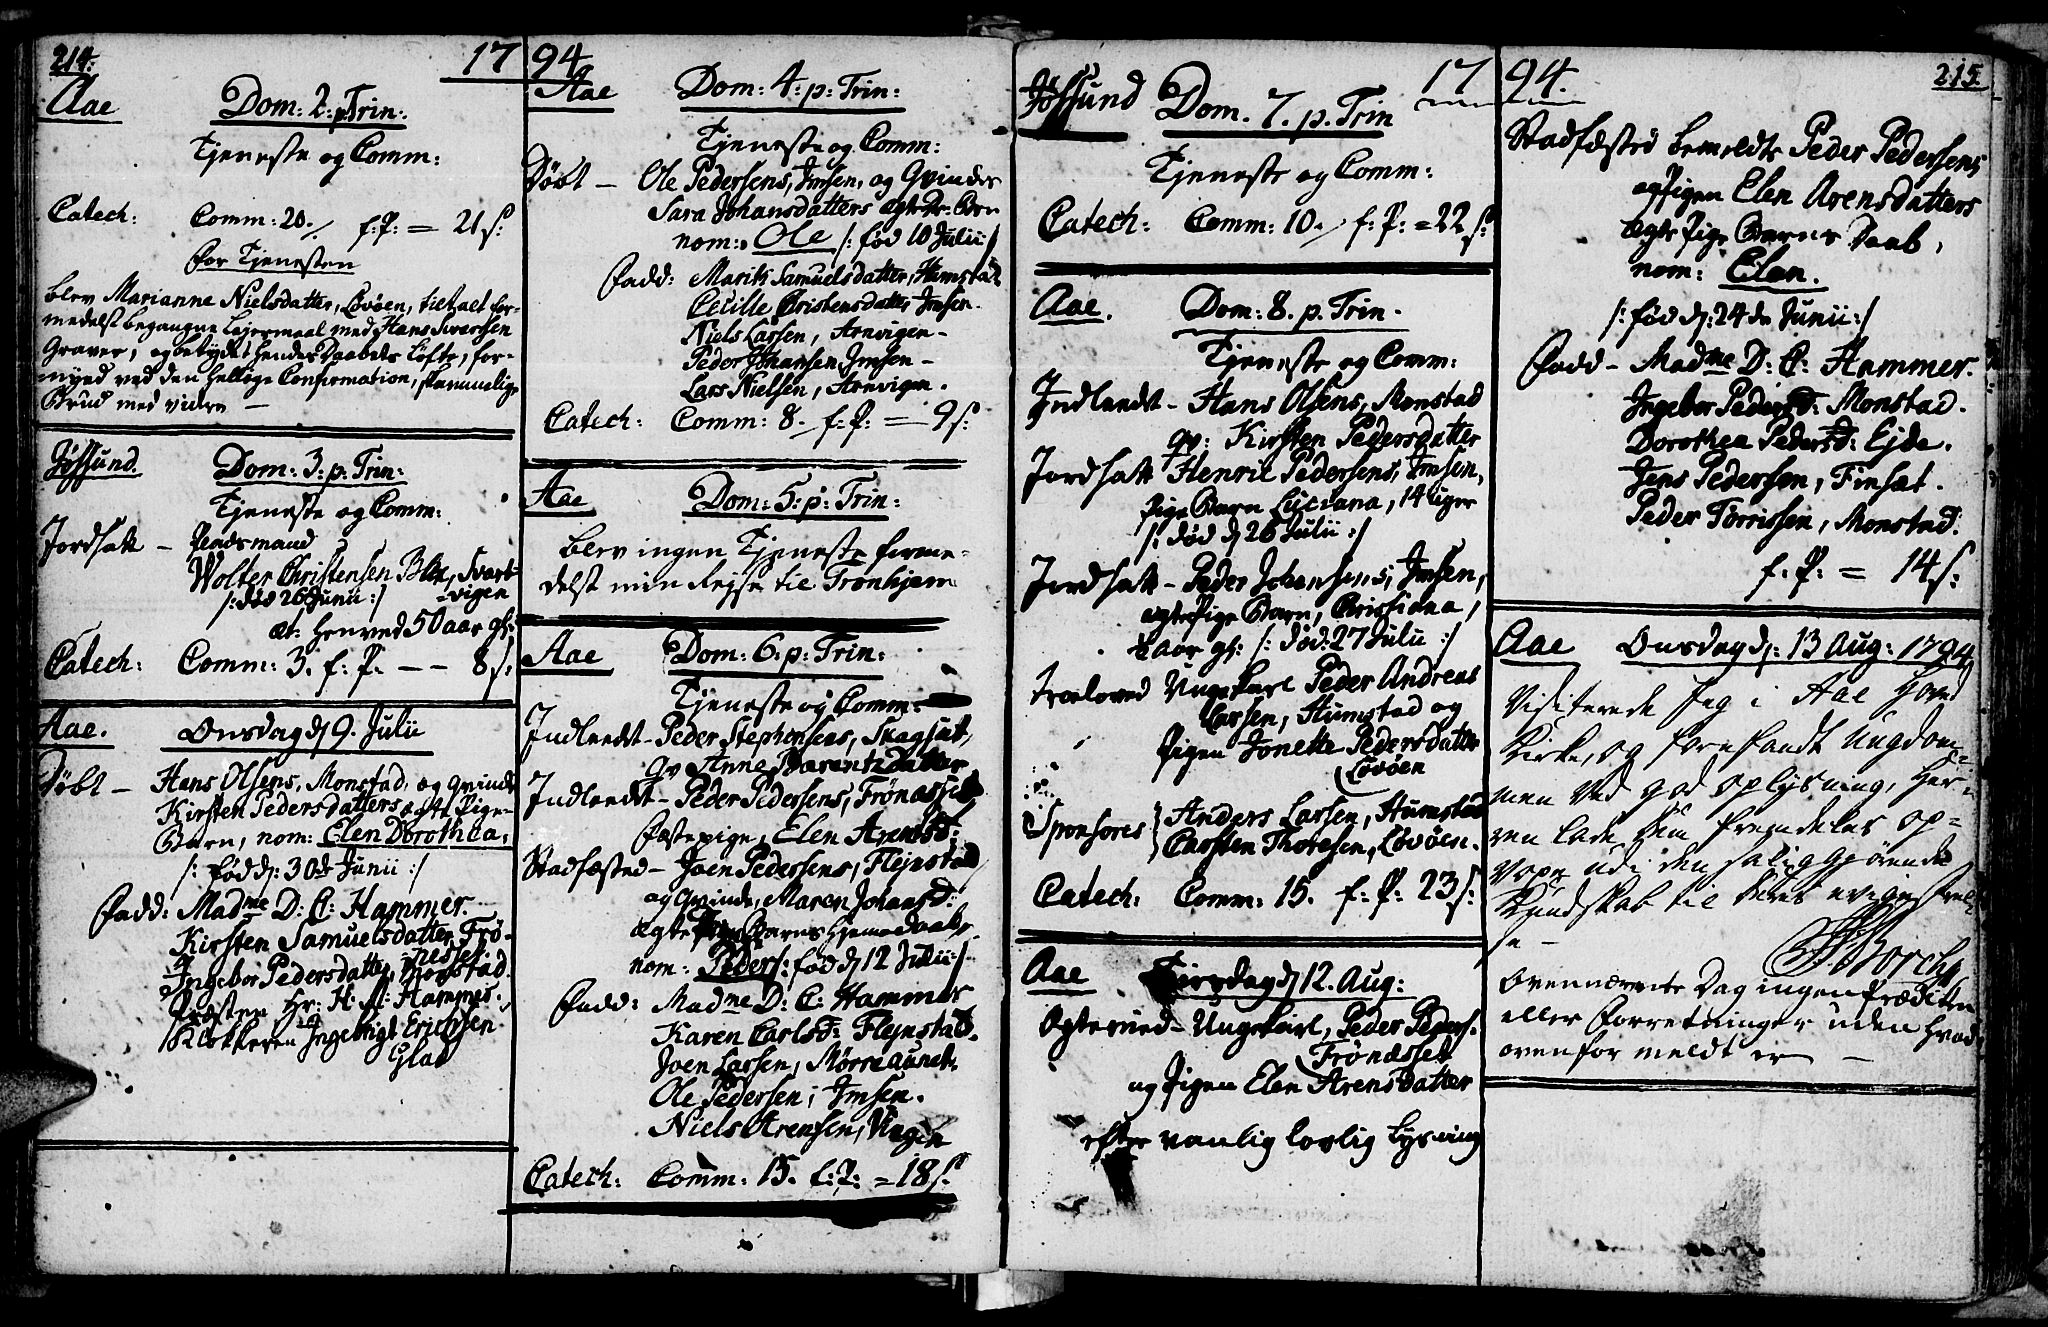 214.
1794
Aae Dom: 2: p: Trin:
Tjeneste og Comm:
Catech: Comm: 20. f: P: = 21 s:
for Tjenesten
blev Marianne Nielsdatter, Lovøen, tiltalt for-
medelst begangne Lejermaal med Hans Siverssen
Graver, og betydet hendes Daabes Løfte, for-
nyed ved den hellige Confirmation, skammelige
Brud med videre —
Jøssund Dom: 3: p: Trin:
Tjeneste og Comm:
Jordsatt — Pladsmand
Wolter Christensen Blix, Svart-
/: død 26 Junii :/ vigen
æt: henved 50 aar gl:
Catech: Comm: 3. f: P. — — 8 s:
Aae. Onsdag d: 9. Julii
Døbt — Hans Olsens, Monstad, og Qvindes
Kirsten Pedersdatters ægte Pige-
Barn, nom: Elen Dorothea,
/: fød d: 30de Junii :/
Fadd: Madme D: C: Hammer.
Kirsten Samuelsdatter, Frö-
nesset
Ingebor Pedersdatter, Monstad.
Præsten Hr: H: A: Hammer.
Klokkeren Ingebrigt Erichsen
Glad
Aae Dom: 4: p: Trin:
Tjeneste og Comm:
Døbt — Ole Pedersens, Imsen, og Qvindes
Sara Johansdatters ægte Dr: Barn
nom: Ole /: fød 10 Julii :/
Fadd: Marit Samuelsdatter, Humstad
Cecille Christensdatter Imsen.
Niels Larsen, Arnvigen —
Peder Johansen Imsen —
Lars Nielsen, Arnvigen.
Catech: Comm: 8. f: P: — 9 s:
Aae Dom: 5: p: Trin:
blev ingen Tjeneste forme-
delst min Rejse til Tronhjem
Aae Dom: 6: p: Trin:
Tjeneste og Comm:
Indleedt — Peder Stephensens, Skagsæt,
qv Anne Barentsdatter
Indleedt — Peder Pedersens, Frönæsset
fæstepige, Elen Arensd:
Stadfæsted — Joen Pedersens, Flejnstad,
og Qvinde, Maren Johansd:
ægte Barns hjemedaab,
nom: Peder /: fød d 12 Julii :/
Fadd: Madme D: C: Hammer
Karen Carlsd: Flejnstad.
Joen Larsen, Mörreaunet.
Ole Pedersen, Imsen.
Niels Arensen, Vingen
Catech: Comm: 15. f: P: = 18 s.
1794.
215
Jøssund Dom. 7. p. Trin
Tjeneste og Comm:
Catech: Comm: 10. f: P: = 22 s:
Aae. Dom: 8. p. Trin.
Tjeneste og Comm:
Indleedt — Hans Olsens, Monstad
qv: Kirsten Pedersdatter
Jordsatt Henric Pedersens, Imsen,
Pige Barn Luciana, 14 Uger
/: død d 26 Julii :/
Jordsatt — Peder Johansens, Imsen,
ægte Pige Barn, Christiana,
aar gl: /: død: 27 Julii :/
troeloved Ungekarl Peder Andreas
Larsen, Humstad og
Pigen Jonette Pedersdatter
Lovøen
Sponsores Anders Larsen, Humstad
Carsten Thoresen, Lovöen.
Catech: Comm: 15. f: P: 23 s:
Aae Tirsdag d 12. Aug:
Ægteviied — Ungekarl, Peder Peders:
Frönæsset
og Pigen Elen Arensdatter
efter vanlig lovlig Lysning
Stadfæsted bemeldte Peder Pedersens
og Pigen Elen Arensdatters
ægte Pige Barns Daab,
nom: Elen.
/: fød d: 24de Junii :/
Fadd — Madme D: C: Hammer.
Ingebor Pedersd: Monstad.
Dorothea Pedersd: Ejde.
Jens Pedersen, Finsæt.
Peder Torrissen, Monstad.
f. P: = 14 s:
Aae Onsdag d: 13 Aug: 1794
Visiterede Jeg i Aae Hoved
Kirke, og forefandt Ungdom-
men ved god oplysning, Her-
ren lade dem fremdeles op-
voxe udi den saliggjørende
Kundskab til deres evige frel-
se —
Borch
Ovennævnte Dag ingen Prædiken
eller Forretninger uden hvad
ovenfor meldt er —